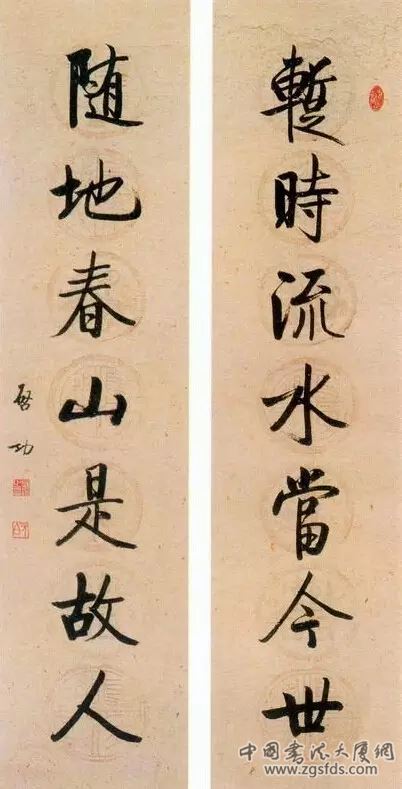 暫時流水當今世
随地春山是故人
啓功
中國書法大廈網
www.zgsfds.com